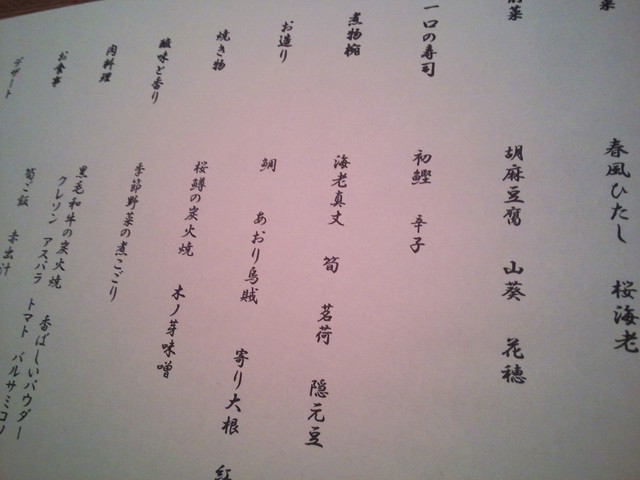 菜 春風ひたし 桜海老
前菜 胡麻豆腐 山葵 花穂
一口の寿司 初鰹 辛子
煮物椀 海老真丈 筍 茗荷 隠元豆
お造り 鯛 あおり烏賊 寄り大根 紅
焼き物 桜鱒の炭火焼 木ノ芽味噌
酸味と香り 季節野菜の煮こごり
肉料理 黒毛和牛の炭火焼 香ばしいパウダー
クレソン アスパラ トマト バルサミコ
お食事 筍ご飯 赤出汁
デザート